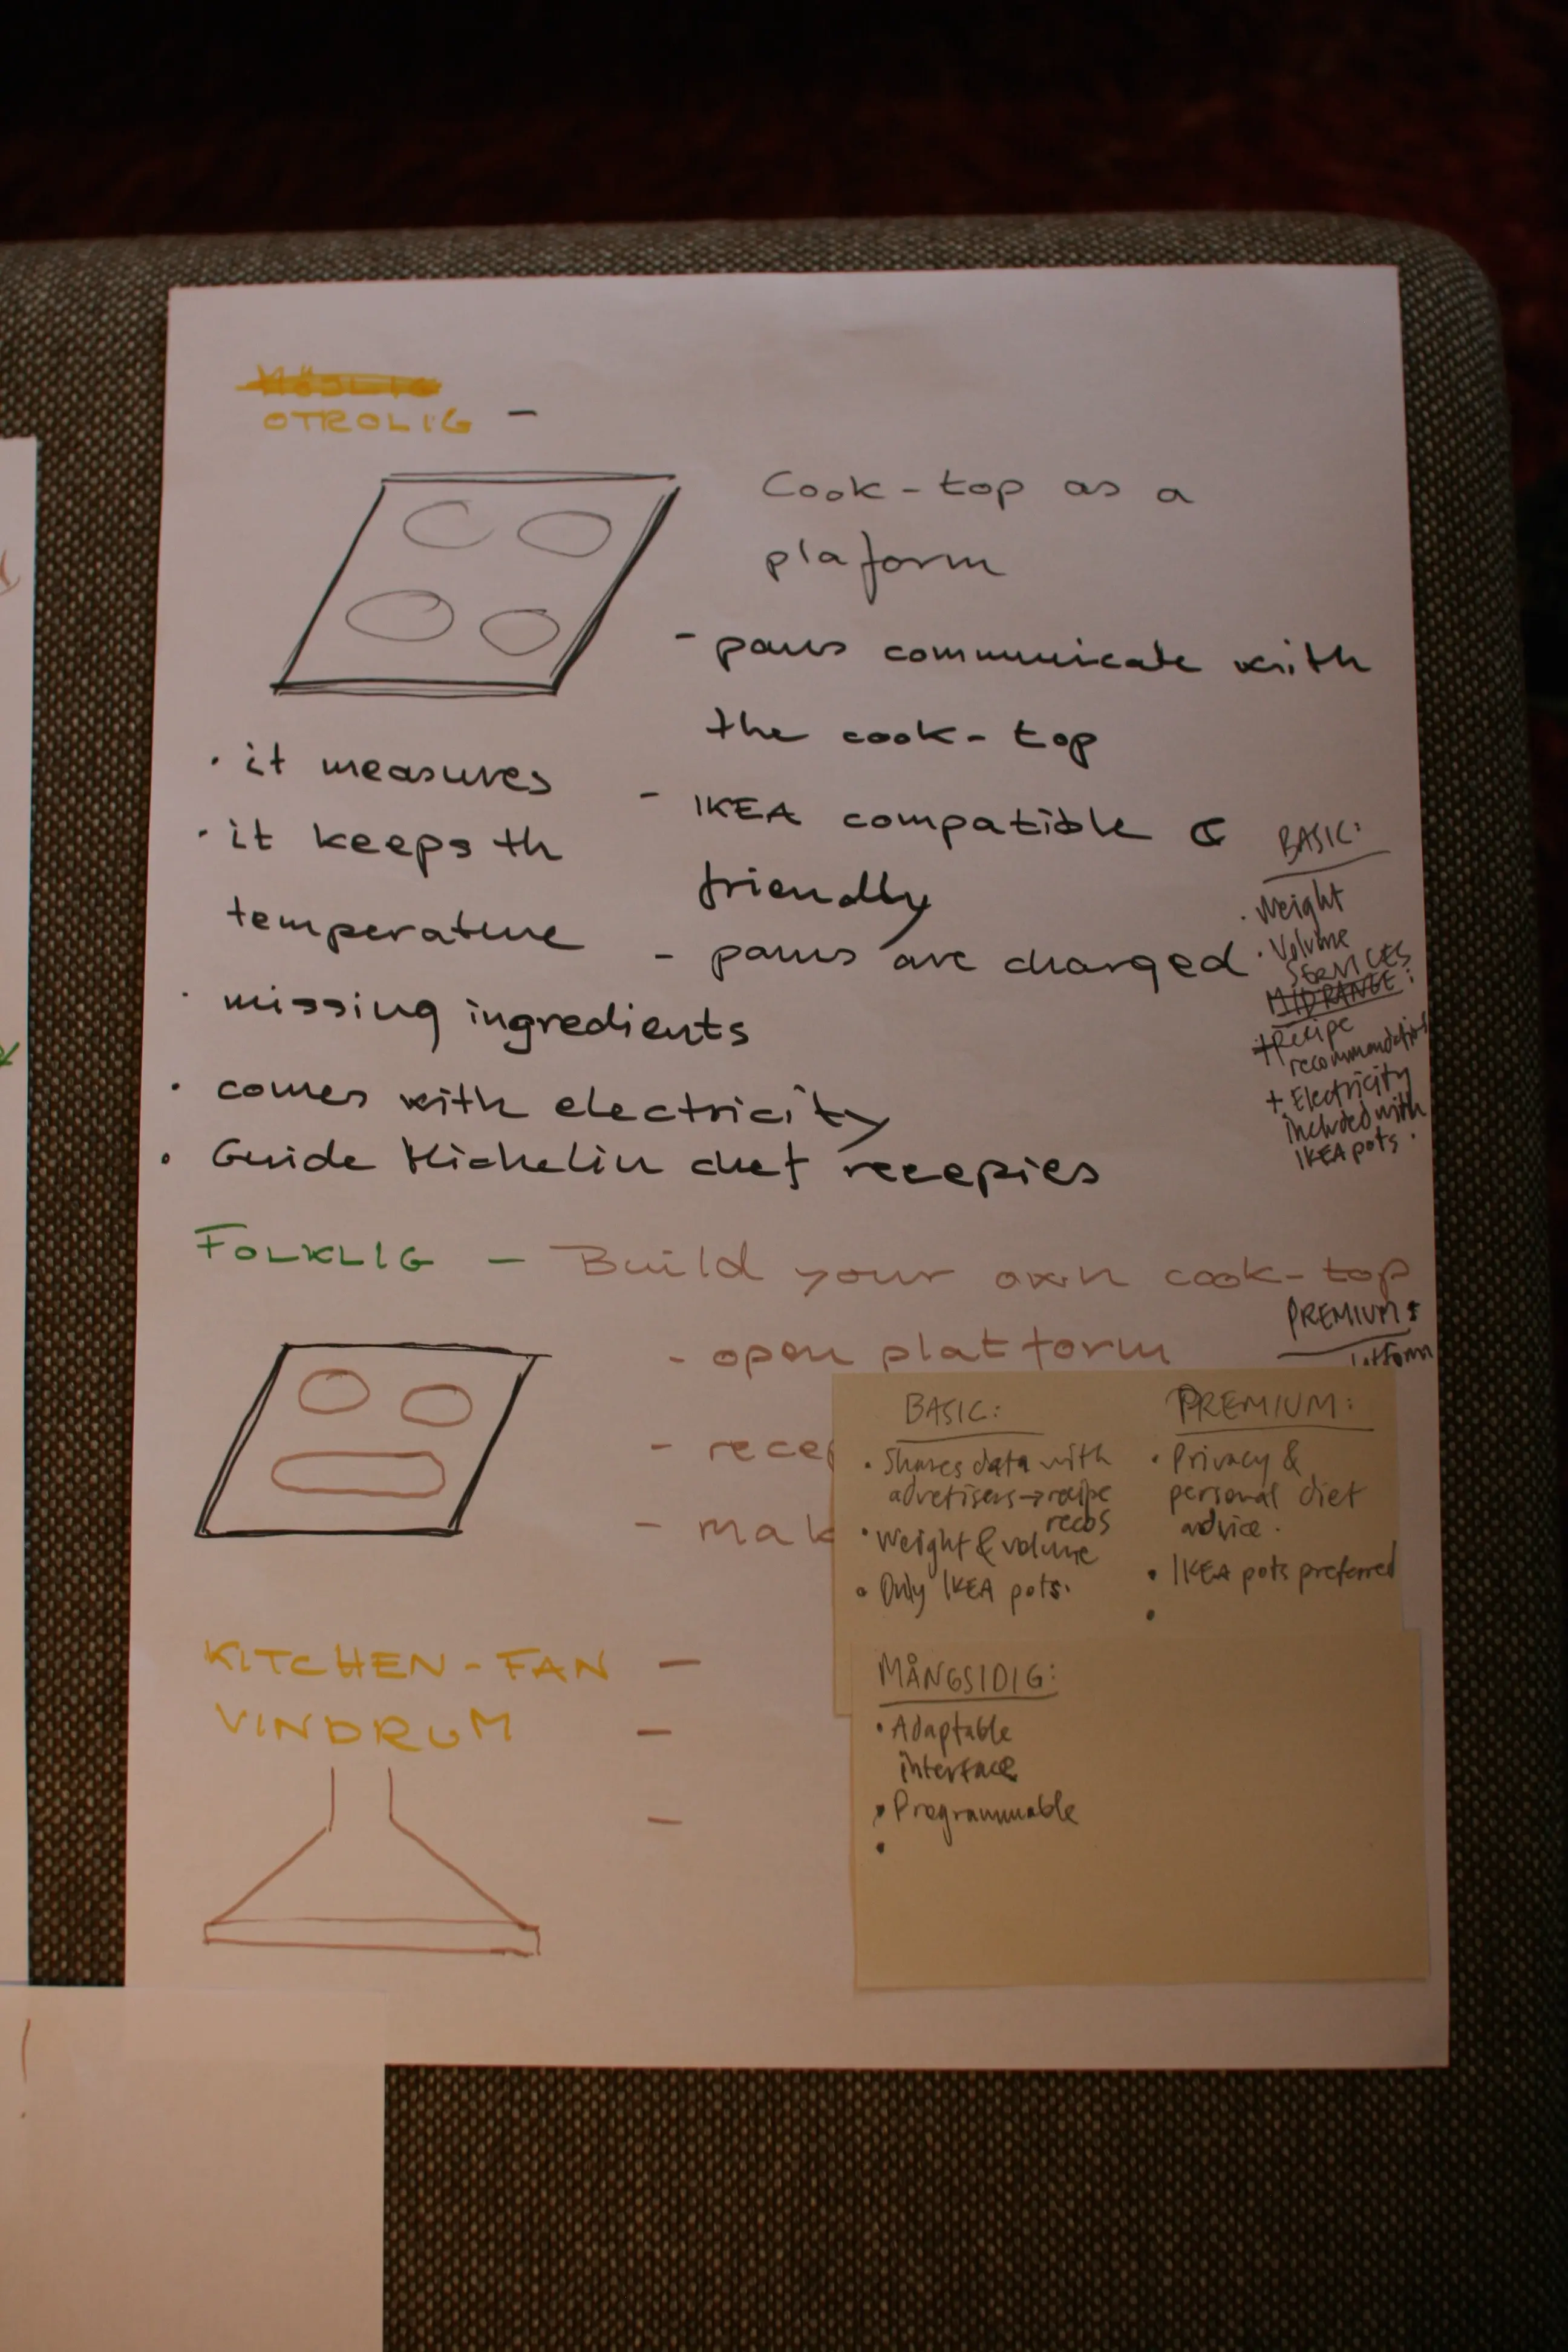 OTROLIG -
Cook-top as a
plaform
- pans communicate with
the cook-top
- IKEA compatible &
friendly
- pans are charged
• it measures
• it keeps th
temperature
• missing ingredients
• comes with electricity
• Guide Michelin chef recepies
BASIC:
• Weight
• Volume
SERVICES
MIDRANGE:
+ Recipe
recommendation
+ Electricity
included with
IKEA pots.
FOLKLIG - Build your own cook-top
- open platform
- rece
- mak
PREMIUM:
BASIC:
• Shares data with
advetisers → recipe
recos
• Weight & volume
• Only IKEA pots.
PREMIUM:
• Privacy &
personal diet
advice.
• IKEA pots preferred
•
MÅNGSIDIG:
• Adaptable
interface
• Programmable
•
KITCHEN-FAN -
VINDRUM -
-